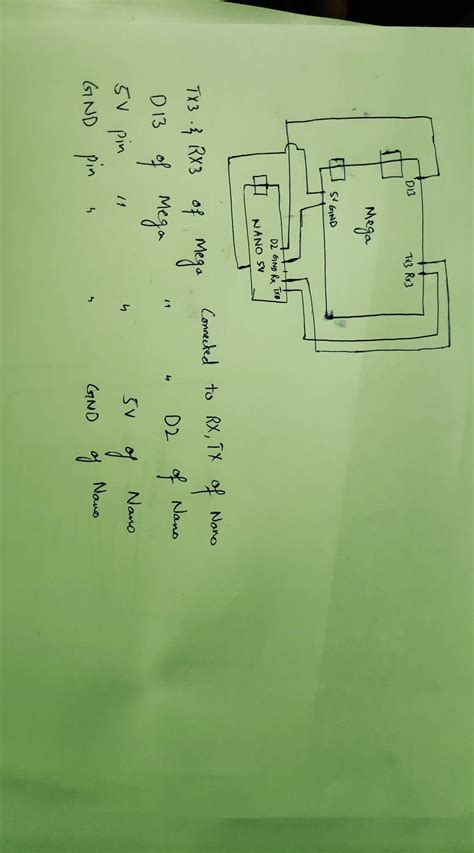 D13
Tx3 Rx3
Mega
5V GND
D2 GND Rx TX0
NANO 5V
TX3 & RX3 of Mega Connected to RX, TX of Nano
D13 of Mega " " D2 of Nano
5V pin " " 5V of Nano
GND pin " " GND of Nano